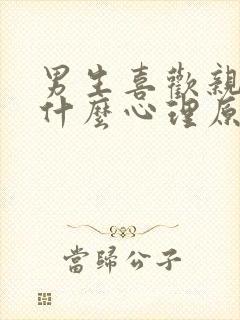 男生喜歡親
什麼心理原
當歸公子